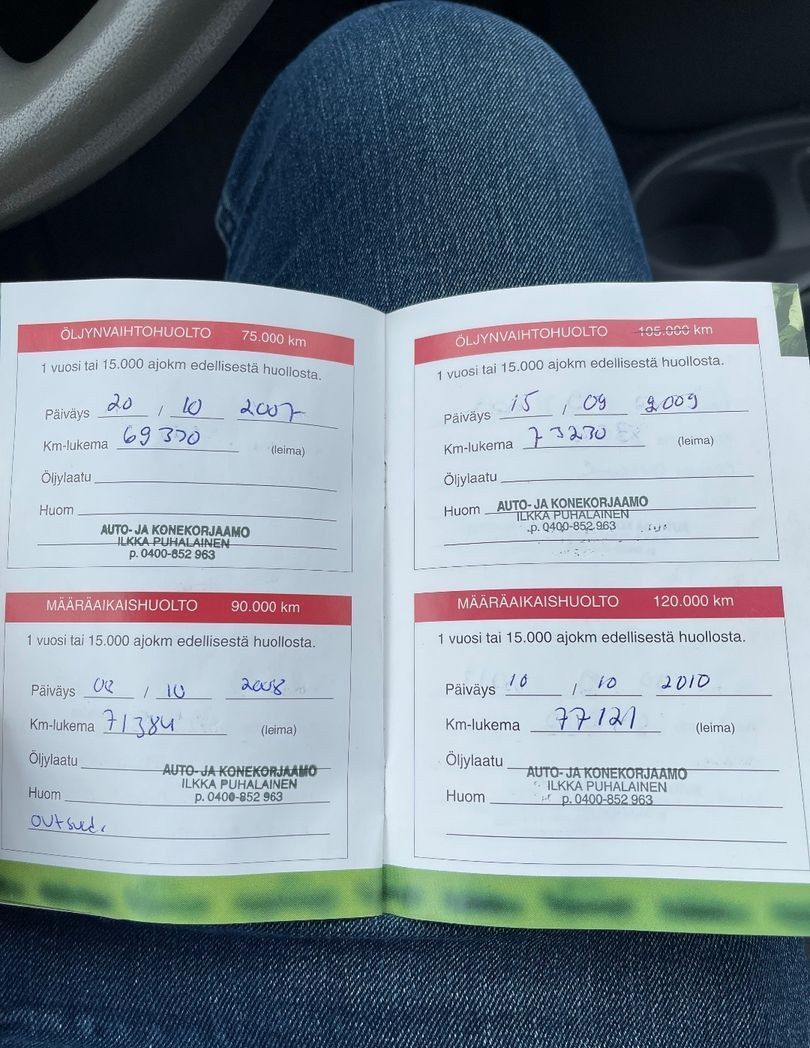 ÖLJYNVAIHTOHUOLTO 75.000 km
1 vuosi tai 15.000 ajokm edellisestä huollosta.
Päiväys 20 / 10 2007
Km-lukema 69370 (leima)
Öljylaatu
Huom
AUTO- JA KONEKORJAAMO
ILKKA PUHALAINEN
p. 0400-852 963
MÄÄRÄAIKAISHUOLTO 90.000 km
1 vuosi tai 15.000 ajokm edellisestä huollosta.
Päiväys / 10 2008
Km-lukema 71384 (leima)
Öljylaatu
AUTO- JA KONEKORJAAMO
ILKKA PUHALAINEN
Huom p. 0400-852 963
ÖLJYNVAIHTOHUOLTO 105.000 km
1 vuosi tai 15.000 ajokm edellisestä huollosta.
Päiväys 15 / 09 2009
Km-lukema 73230 (leima)
Öljylaatu
Huom AUTO- JA KONEKORJAAMO
ILKKA PUHALAINEN
p. 0400-852 963
MÄÄRÄAIKAISHUOLTO 120.000 km
1 vuosi tai 15.000 ajokm edellisestä huollosta.
Päiväys 10 / 10 2010
Km-lukema 77121 (leima)
Öljylaatu
AUTO- JA KONEKORJAAMO
ILKKA PUHALAINEN
Huom p. 0400-852 963